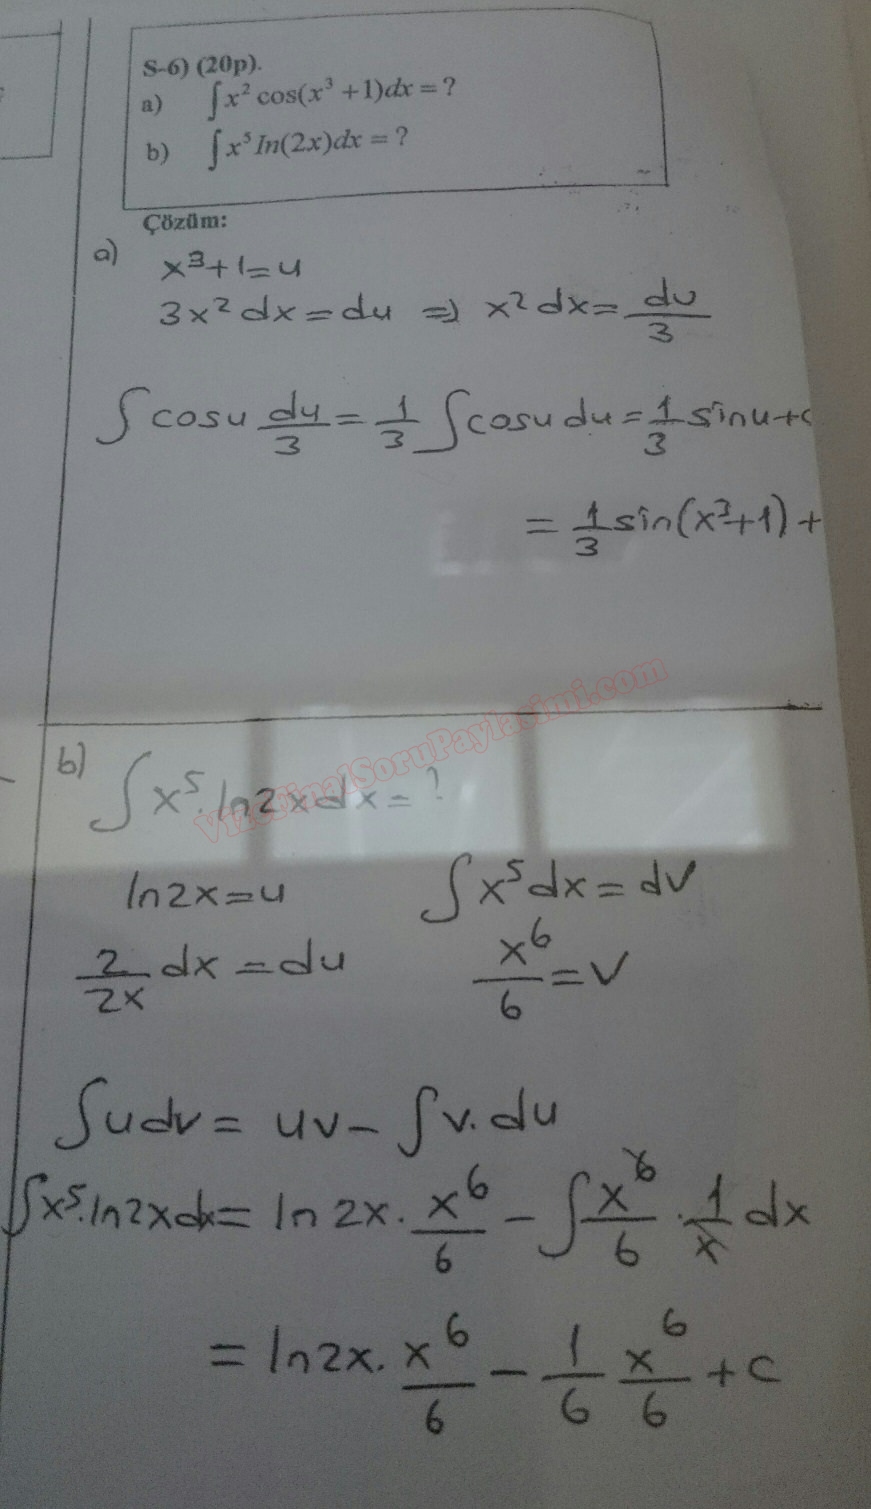 S-6) (20p).
a) ∫x² cos(x³ +1)dx = ?
b) ∫x⁵ In(2x)dx = ?
Çözüm:
a)
x³+1=u
3x²dx=du ⇒ x²dx=du/3
∫cosu du/3 = 1/3 ∫cosu du = 1/3 sinu+c
= 1/3 sin(x³+1)+
VizeFinalSoruPaylasimi.com
b) ∫x⁵.ln2xdx=?
ln2x=u ∫x⁵dx=dv
2/2x dx=du x⁶/6=v
∫udv= uv-∫v.du
∫x⁵.ln2xdx= ln2x. x⁶/6 - ∫x⁶/6 . 1/x dx
= ln2x. x⁶/6 - 1/6 x⁶/6 +c